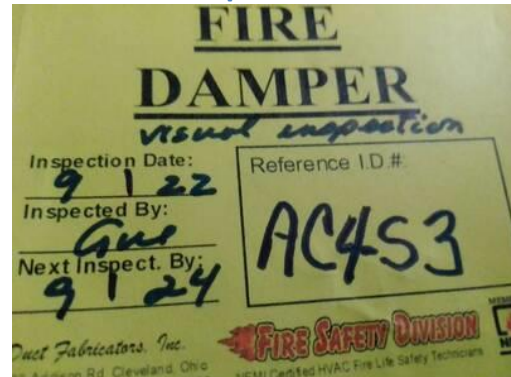 FIRE
DAMPER
visual inspection
Inspection Date:
9 | 22
Inspected By:
Gus
Next Inspect. By:
9 | 24
Reference I.D.#
AC4S3
Duct Fabricators, Inc.
Addison Rd. Cleveland, Ohio
FIRE SAFETY DIVISION
NEMI Certified HVAC Fire Life Safety Technicians